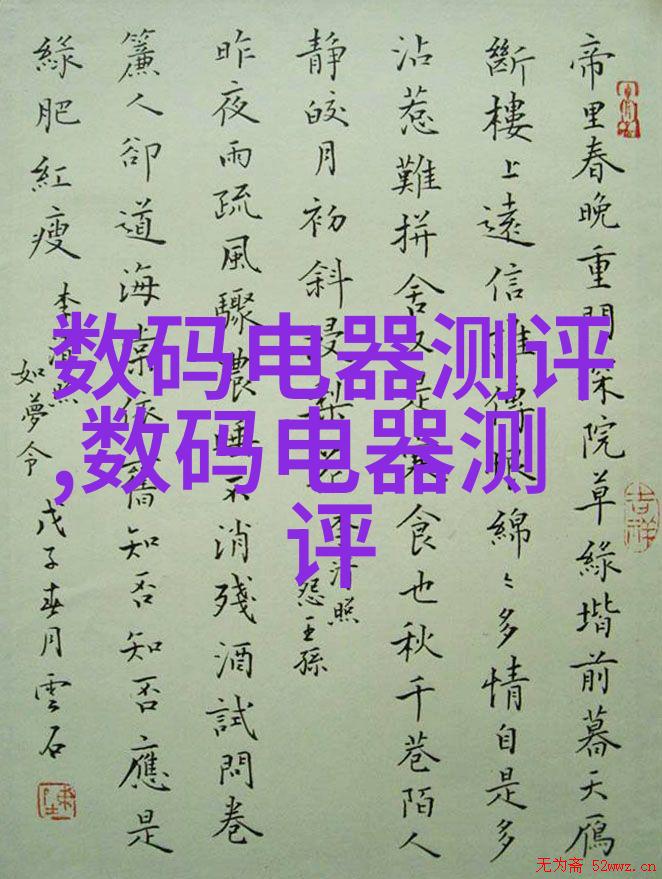 帝里春晚重門深院草緑堦前暮天鴈
斷樓上遠信誰得恨綿〻多情自是多
沾惹難拼舍又是寒食也秋千巷陌人
静皎月初斜浸梨花
李清照
怨王孫
昨夜雨疏風驟濃睡不消殘酒試問卷
簾人卻道海棠依舊知否知否應是
緑肥紅瘦
李清照
如夢令
戊子春月雲石
吉祥
数码电器测评
,数码电器测
评
无为斋 52wwz.cn